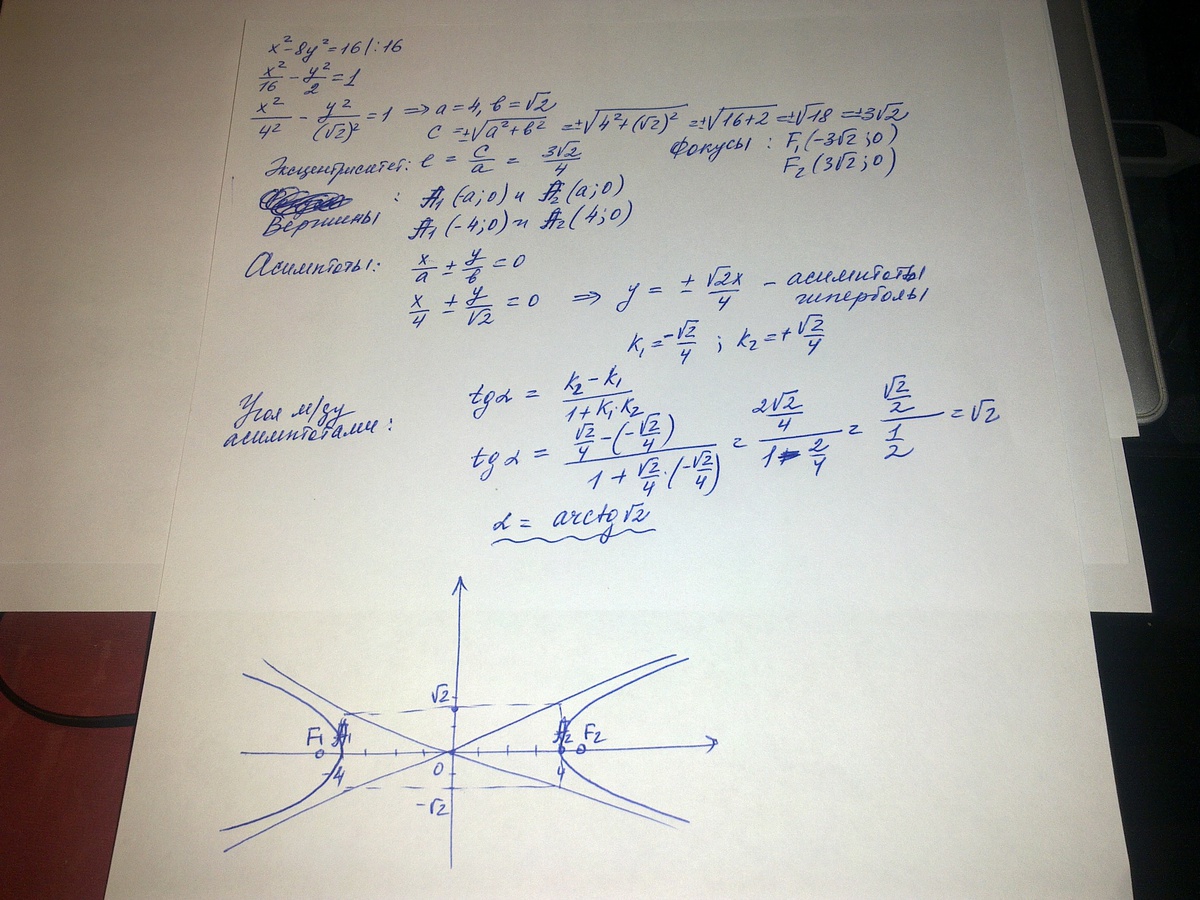 x² - 8y² = 16 /:16
x²/16 - y²/2 = 1
x²/4² - y²/(√2)² = 1 => a = 4, b = √2
c = ±√(a² + b²) = ±√(4² + (√2)²) = ±√(16+2) = ±√18 = ±3√2
Эксцентриситет: e = c/a = 3√2/4
Фокусы: F₁(-3√2; 0)
F₂(3√2; 0)
Вершины: A₁(-a; 0) и A₂(a; 0)
A₁(-4; 0) и A₂(4; 0)
Асимптоты: x/a ± y/b = 0
x/4 ± y/√2 = 0 => y = ± √2x/4 - асимптоты
гиперболы
k₁ = -√2/4 ; k₂ = +√2/4
Угол м/ду
асимптотами:
tg α = (k₂ - k₁)/(1 + k₁·k₂)
tg α = (√2/4 - (-√2/4))/(1 + √2/4·(-√2/4)) = (2√2/4)/(1 - 2/4) = (√2/2)/(1/2) = √2
α = arctg √2
√2
F₁ A₁ A₂ F₂
-4 0 4
-√2